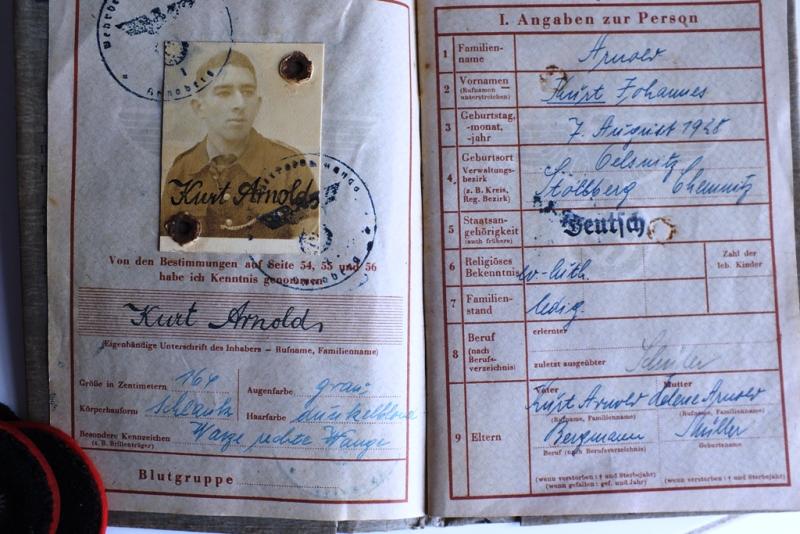 Kurt Arnold
Von den Bestimmungen auf Seite 54, 55 und 56
habe ich Kenntnis genommen
Kurt Arnold
(Eigenhändige Unterschrift des Inhabers – Rufname, Familienname)
Größe in Zentimetern 164 Augenfarbe grau
Körperbauform schlank Haarfarbe dunkelblond
Besondere Kennzeichen Warze rechte Wange
(z. B. Brillenträger)
Blutgruppe
I. Angaben zur Person
1 Familienname Arnold
2 Vornamen (Rufnamen unterstreichen) Kurt Johannes
3 Geburtstag, -monat, -jahr 7. August 1928
4 Geburtsort Oelsnitz
Verwaltungsbezirk (z. B. Kreis, Reg. Bezirk) Stollberg Chemnitz
5 Staatsangehörigkeit (auch früher) Deutsch
6 Religiöses Bekenntnis ev-luth. Zahl der leb. Kinder
7 Familienstand ledig.
8 Beruf (nach Berufsverzeichnis) erlernter
zuletzt ausgeübter Schüler
9 Eltern Vater Mutter
Kurt Arnold Helene Arnold
(Rufname, Familienname) (Rufname, Familienname)
Bergmann
Beruf (nach Berufsverzeichnis) Geburtsname
(wenn verstorben: † und Sterbejahr) (wenn verstorben: † und Sterbejahr)
(wenn gefallen: gef. und Jahr)